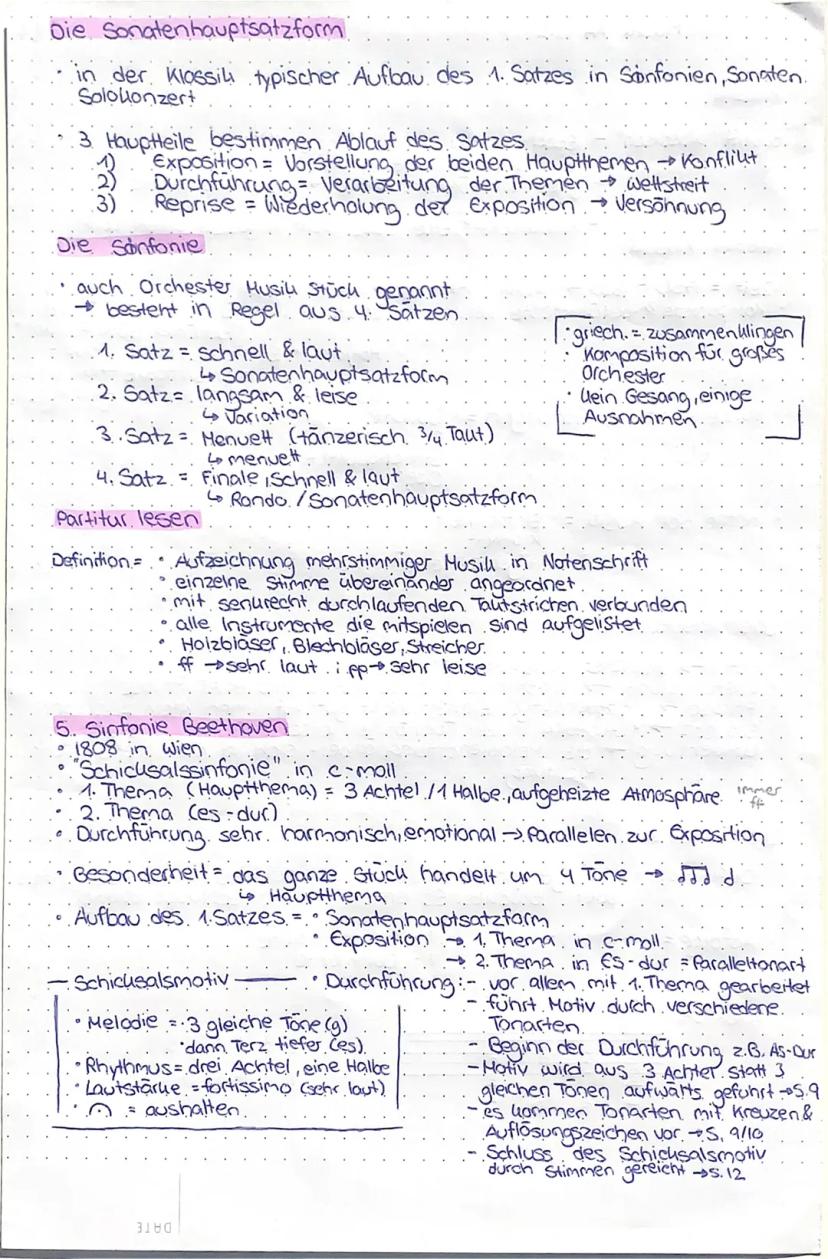 Die Sonatenhauptsatzform
· in der Klassik typischer Aufbau des 1. Satzes in Sinfonien, Sonaten
Solokonzert
· 3 Hauptteile bestimmen Ablauf des Satzes
1) Exposition = Vorstellung der beiden Hauptthemen → Konflikt
2) Durchführung = Verarbeitung der Themen → Wettstreit
3) Reprise = Wiederholung der Exposition → Versöhnung
Die Sinfonie
· auch Orchester Musik Stück genannt
→ besteht in Regel aus 4 Sätzen
1. Satz = schnell & laut
↳ Sonatenhauptsatzform
2. Satz = langsam & leise
↳ Variation
3. Satz = Menuett (tänzerisch 3/4 Takt)
↳ menuett
4. Satz = Finale, schnell & laut
↳ Rondo / Sonatenhauptsatzform
· griech. = zusammenklingen
· Komposition für großes
Orchester
· kein Gesang, einige
Ausnahmen
Partitur lesen
Definition = · Aufzeichnung mehrstimmiger Musik in Notenschrift
· einzelne Stimme übereinander angeordnet
· mit senkrecht durchlaufenden Taktstrichen verbunden
· alle Instrumente die mitspielen sind aufgelistet
· Holzbläser, Blechbläser, Streicher
· ff → sehr laut ; pp → sehr leise
5. Sinfonie Beethoven
· 1808 in Wien
· "Schicksalssinfonie" in c-moll
· 1. Thema (Hauptthema) = 3 Achtel / 1 Halbe, aufgeheizte Atmosphäre immer ff
· 2. Thema (es-dur)
· Durchführung sehr harmonisch, emotional → Parallelen zur Exposition
· Besonderheit = das ganze Stück handelt um 4 Töne → ♫♪ 𝅗𝅥
↳ Hauptthema
· Aufbau des 1. Satzes = · Sonatenhauptsatzform
· Exposition → 1. Thema in c-moll
→ 2. Thema in Es-dur = Paralleltonart
· Durchführung: - vor allem mit 1. Thema gearbeitet
- führt Motiv durch verschiedene
Tonarten
- Beginn der Durchführung z.B. As-Dur
- Motiv wird aus 3 Achter statt 3
gleichen Tönen aufwärts geführt → S.9
- es kommen Tonarten mit Kreuzen &
Auflösungszeichen vor → S. 9/10
- Schluss des Schicksalsmotiv
durch Stimmen gereicht → S.12
Schicksalsmotiv
· Melodie = · 3 gleiche Töne (g)
· dann Terz tiefer (es)
· Rhythmus = drei Achtel, eine Halbe
· Lautstärke = fortissimo (sehr laut)
· 𝄐 = aushalten
DATE